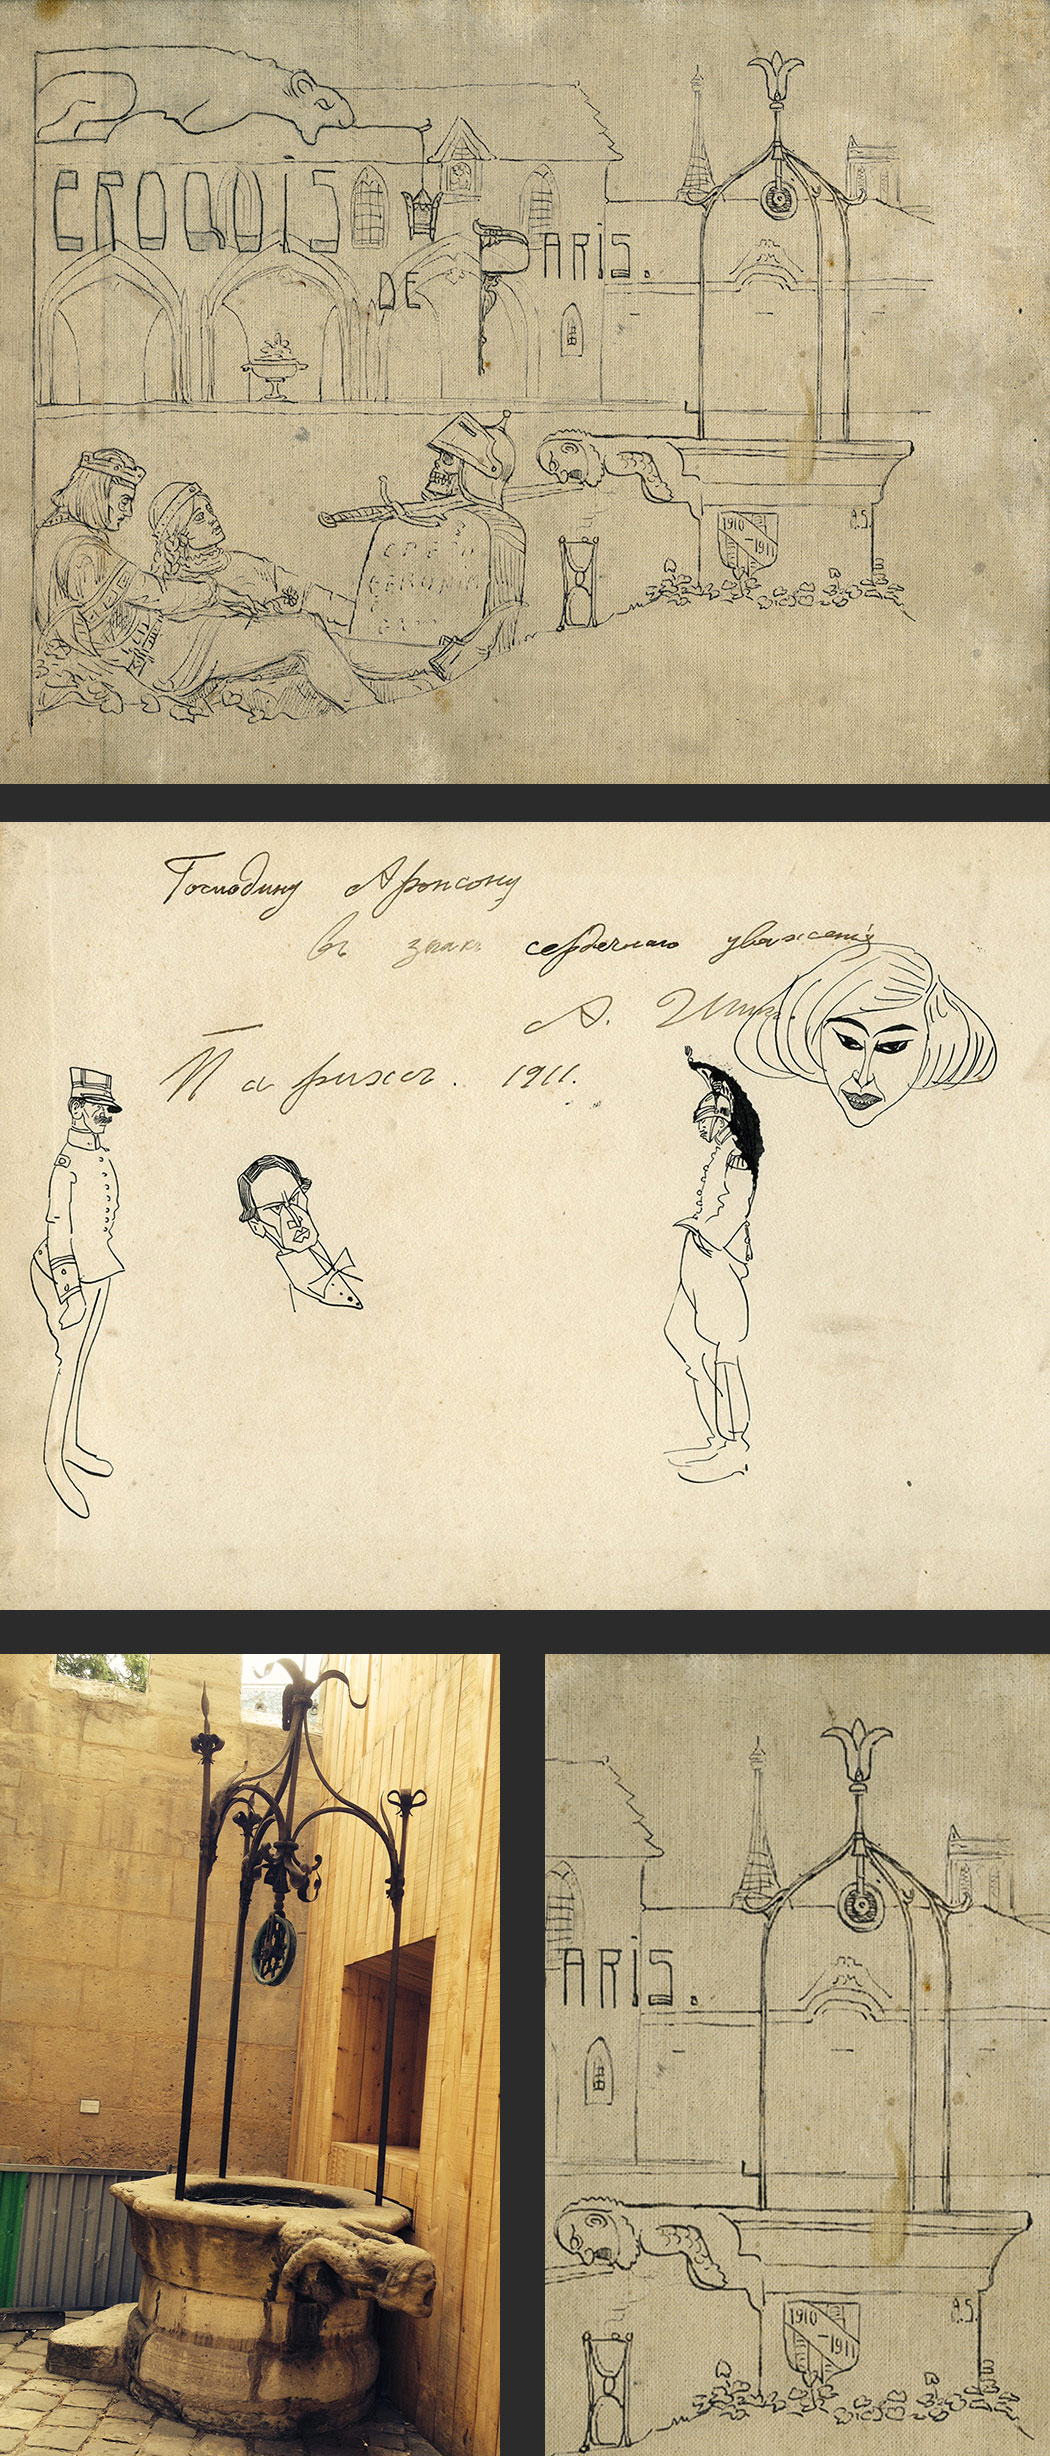 CROQUIS
DE PARIS.
1910
-1911
A.S.
Господину Аронсону
въ знакъ сердечнаго уваженія
А.
Парижъ. 1911.
ARIS.
1910
-1911
A.S.